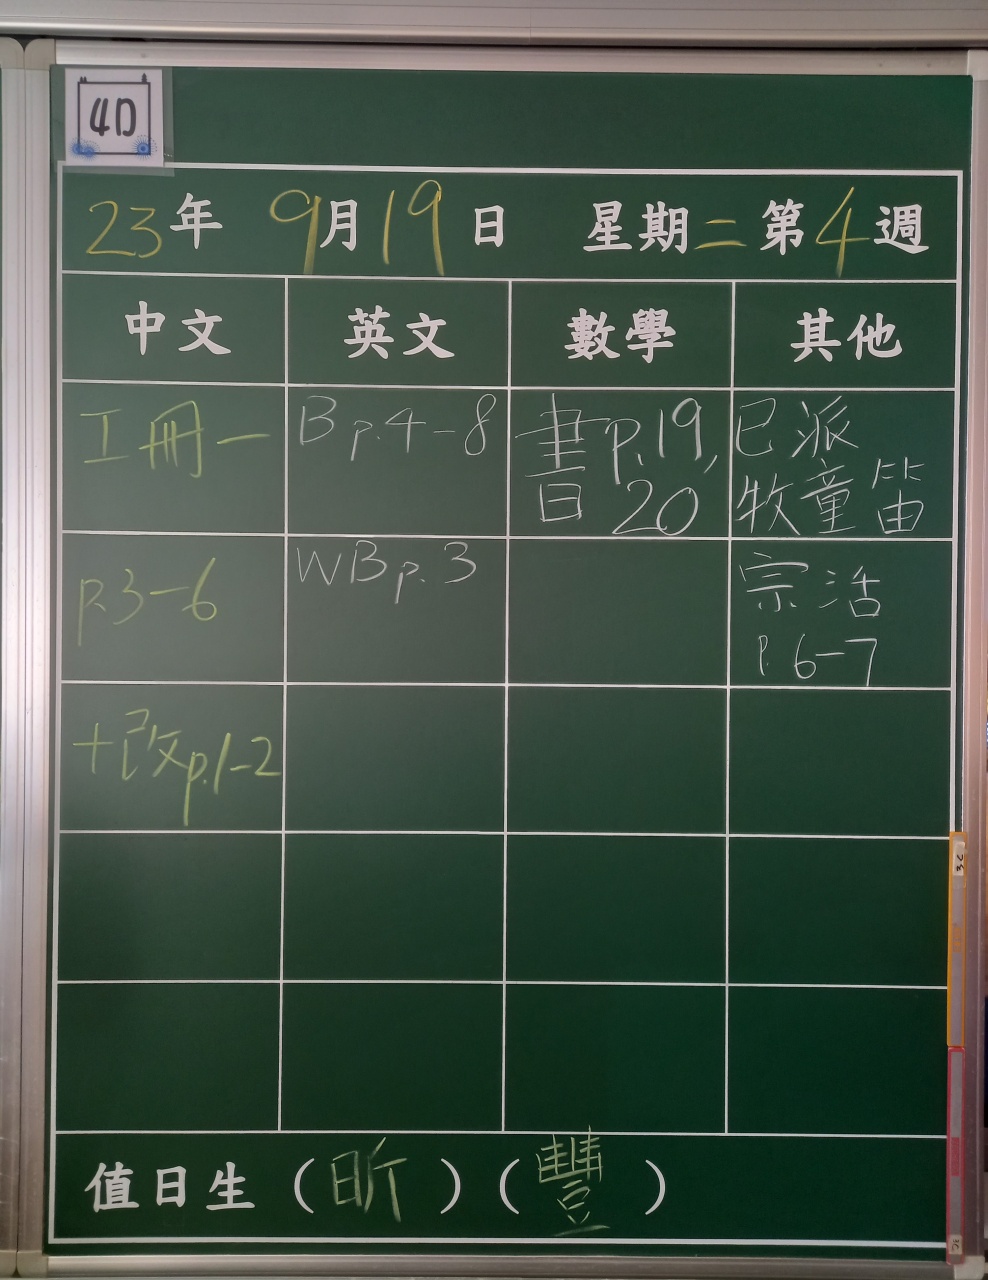 4D
23年 9月19日 星期二第4週
中文 英文 數學 其他
工冊一 Bp.4-8 書p.19, 已派
20 牧童笛
p.3-6 WBp.3 宗活
p.6-7
+改p.1-2
值日生(昕)(豐)
3C
3C